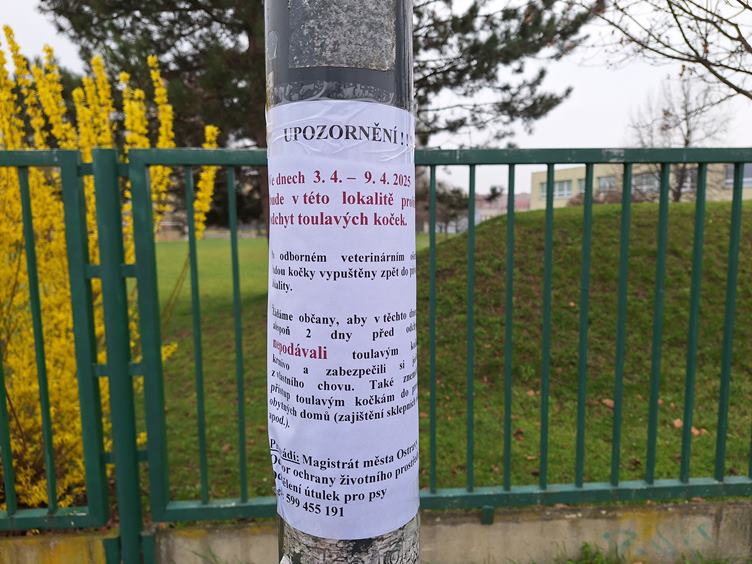 UPOZORNĚNÍ!!
dnech 3. 4. – 9. 4. 2025
v této lokalitě
odchyt toulavých koček.
odborném veterinárním
kočky vypuštěny zpět do

Žádáme občany, aby v těchto
2 dny před
nepodávali toulavým
krmivo a zabezpečili si
z vlastního chovu. Také
přístup toulavým kočkám do
obytných domů (zajištění sklepních
apod.).
Provádí: Magistrát města
ochrany životního
útulek pro psy
599 455 191